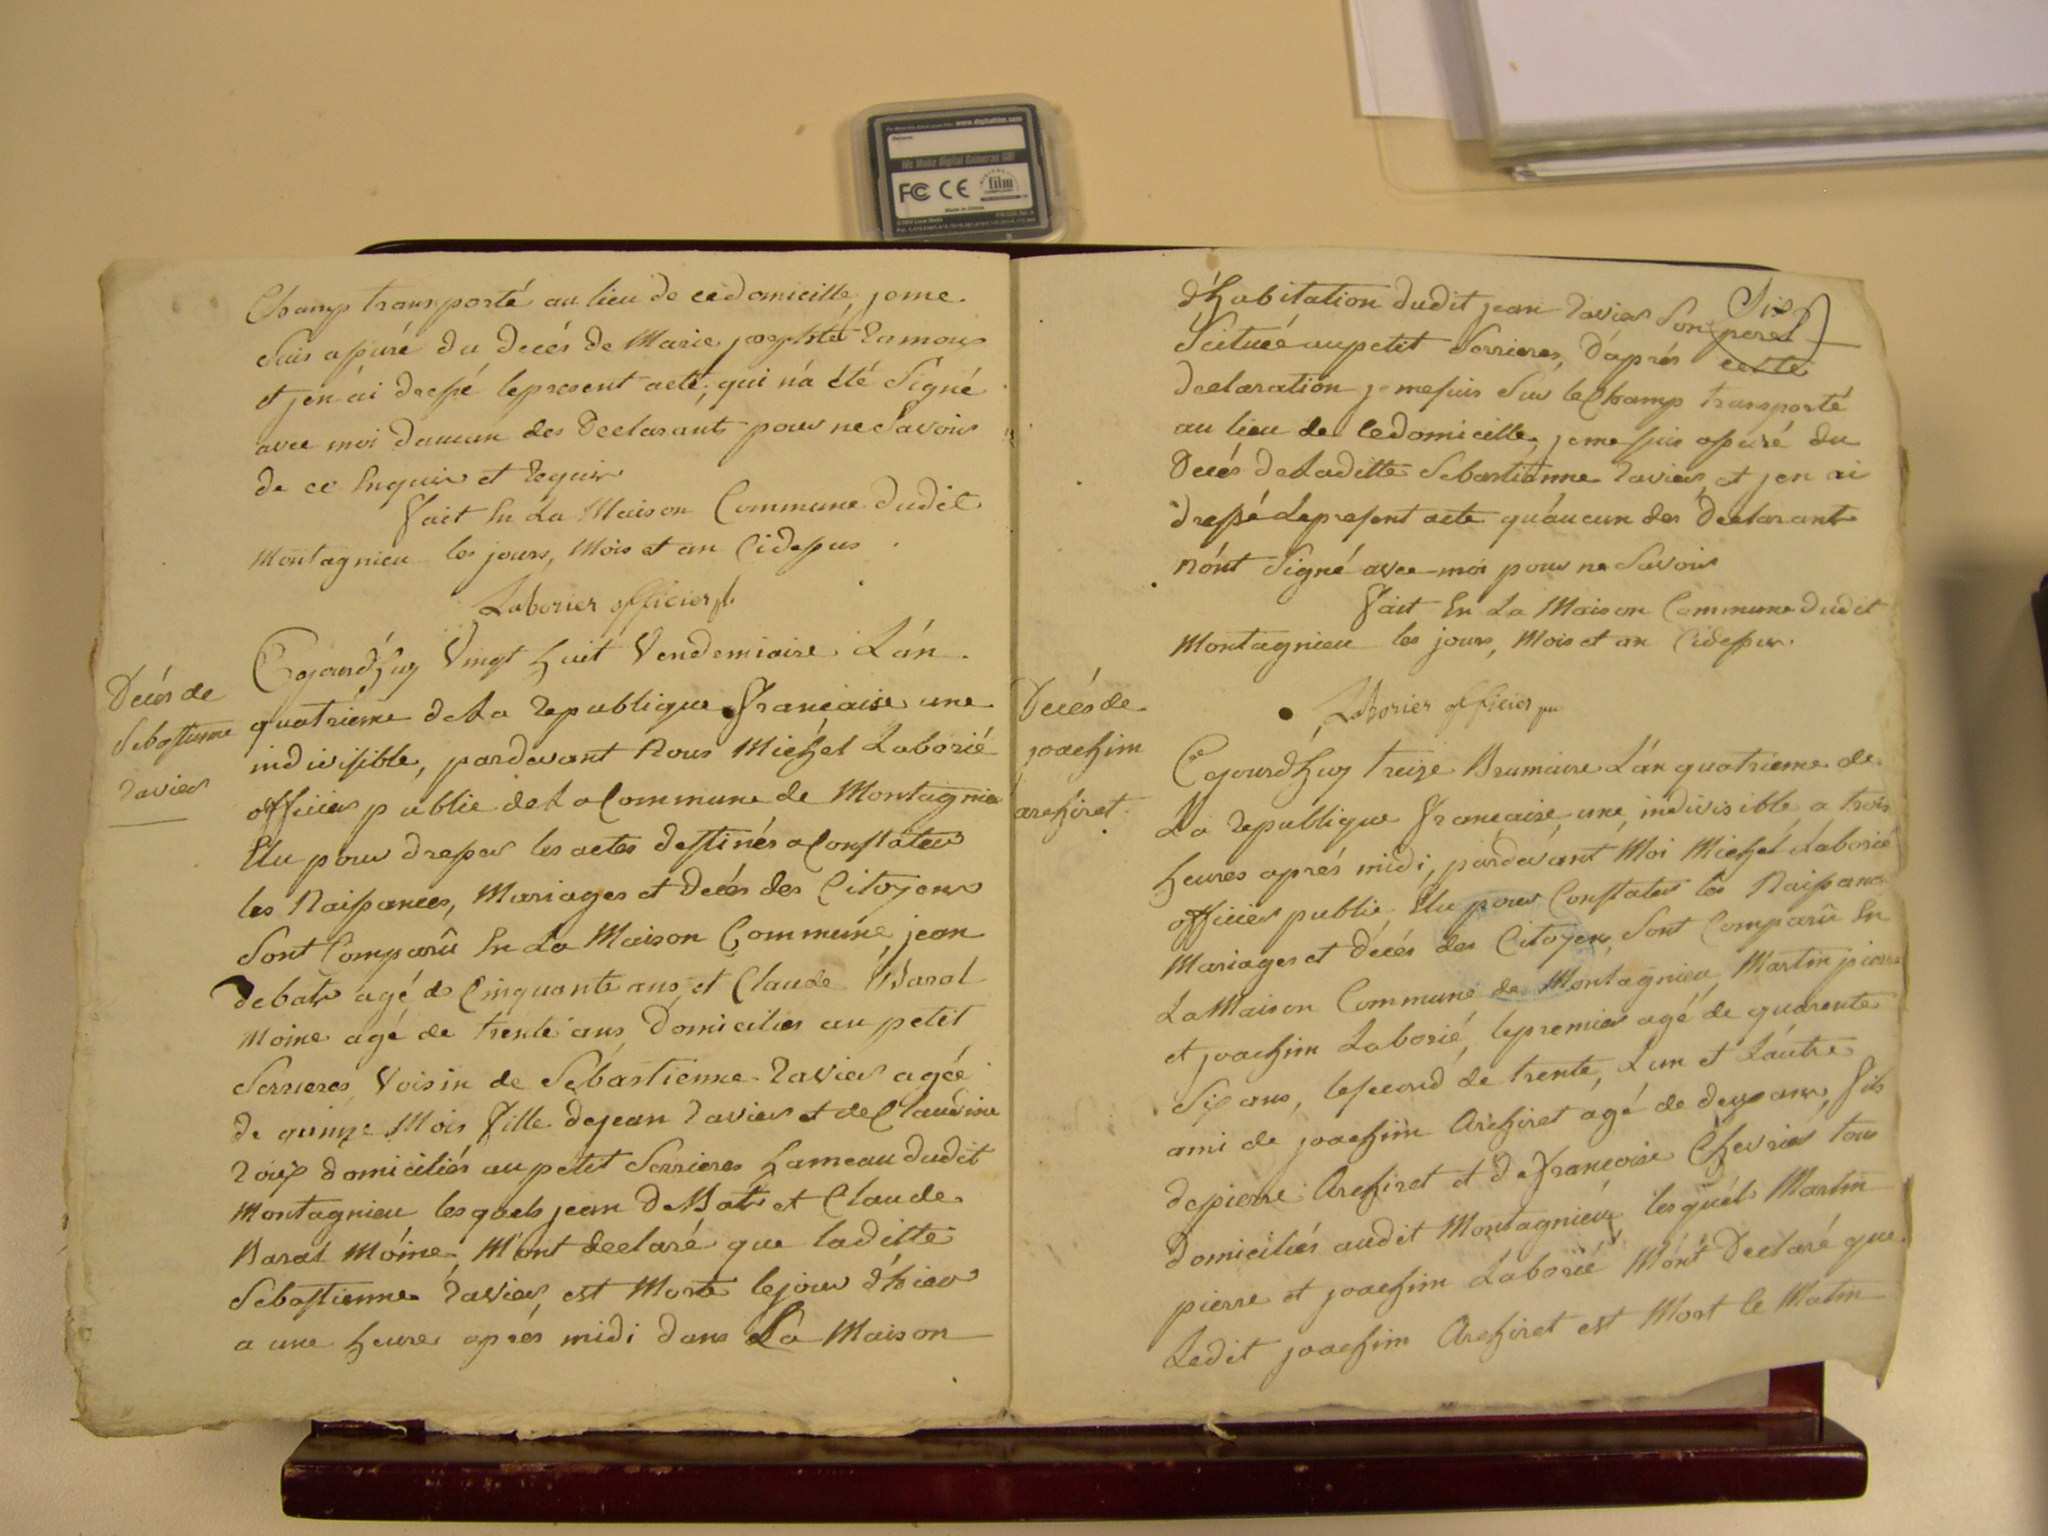 www.digitalfilm.com
We Make Digital Cameras GO!
FC CE film
Champ transporté au lieu de ce domicille, je me
suis assuré du decés de Marie josephte Ramous
et j'en ai dressé le present acte, qui n'a été signé
avec moi d'aucun des declarants pour ne savoir
de ce Enquis et Requis
fait En La Maison Commune dudit
Montagnieu les jours, Mois et an Cidessus
Laborier officier p.
Decés de
Sebastienne
Ravier
Cejourd'huy Vingt huit Vendemiaire L'án
quatrieme de La republique française une
indivisible, pardevant Nous Michel Laborié
officier public de La Commune de Montagnieu
Elu pour dresser les actes destinés a Constater
les Naissances, Mariages et decés des Citoyens
sont Comparû En La Maison Commune, jean
debatr agé de Cinquante ans, et Claude Baral
Moine agé de trente ans, Domiciliés au petit
Serrieres, Voisin de Sebastienne Ravier agée
de quinze Mois fille de jean Ravier et de Claudine
Roux domiciliés au petit Serrieres hameau dudit
Montagnieu lesquels jean de Batr et Claude
Baral Móine, M'ont declaré que laditte
Sebastienne Ravier, est Morte le jour d'hier
a une heure aprés midi dans La Maison
d'habitation dudit jean Ravier son pere Sis
Scituée au petit Serrieres, D'aprés cette
declaration je me suis sur le Champ transporté
au lieu de ce domicille, je me suis assuré du
Decés de Laditte Sebastienne Ravier, et j'en ai
dressé Le present acte qu'aucun des Declarant
n'ónt signé avec moi pour ne savoir
fait En La Maison Commune dudit
Montagnieu les jours, Mois et an Cidessus.
Laborier officier pu
Decés de
joachim
archiret
Cejourd'huy treize Brumaire L'án quatrieme de
La republique française, une, indivisible, a trois
heures aprés midi, pardevant Moi Michel Laborié
officier public, Elu pour Constater les Naissances
Mariages et décés des Citoyens, sont Comparû En
La Maison Commune de Montagnieu, Martin pierre
et joachim Laborié, le premier agé de quarente
Six ans, le second de trente, L'un et L'autre
ami de joachim Archiret agé de deux ans, fils
de pierre Archiret et de françoise Chevrier tous
domiciliés audit Montagnieu, lesquels Martin
pierre et joachim Laborié M'ónt Declaré que
Ledit joachim Archiret est Mort le Matin